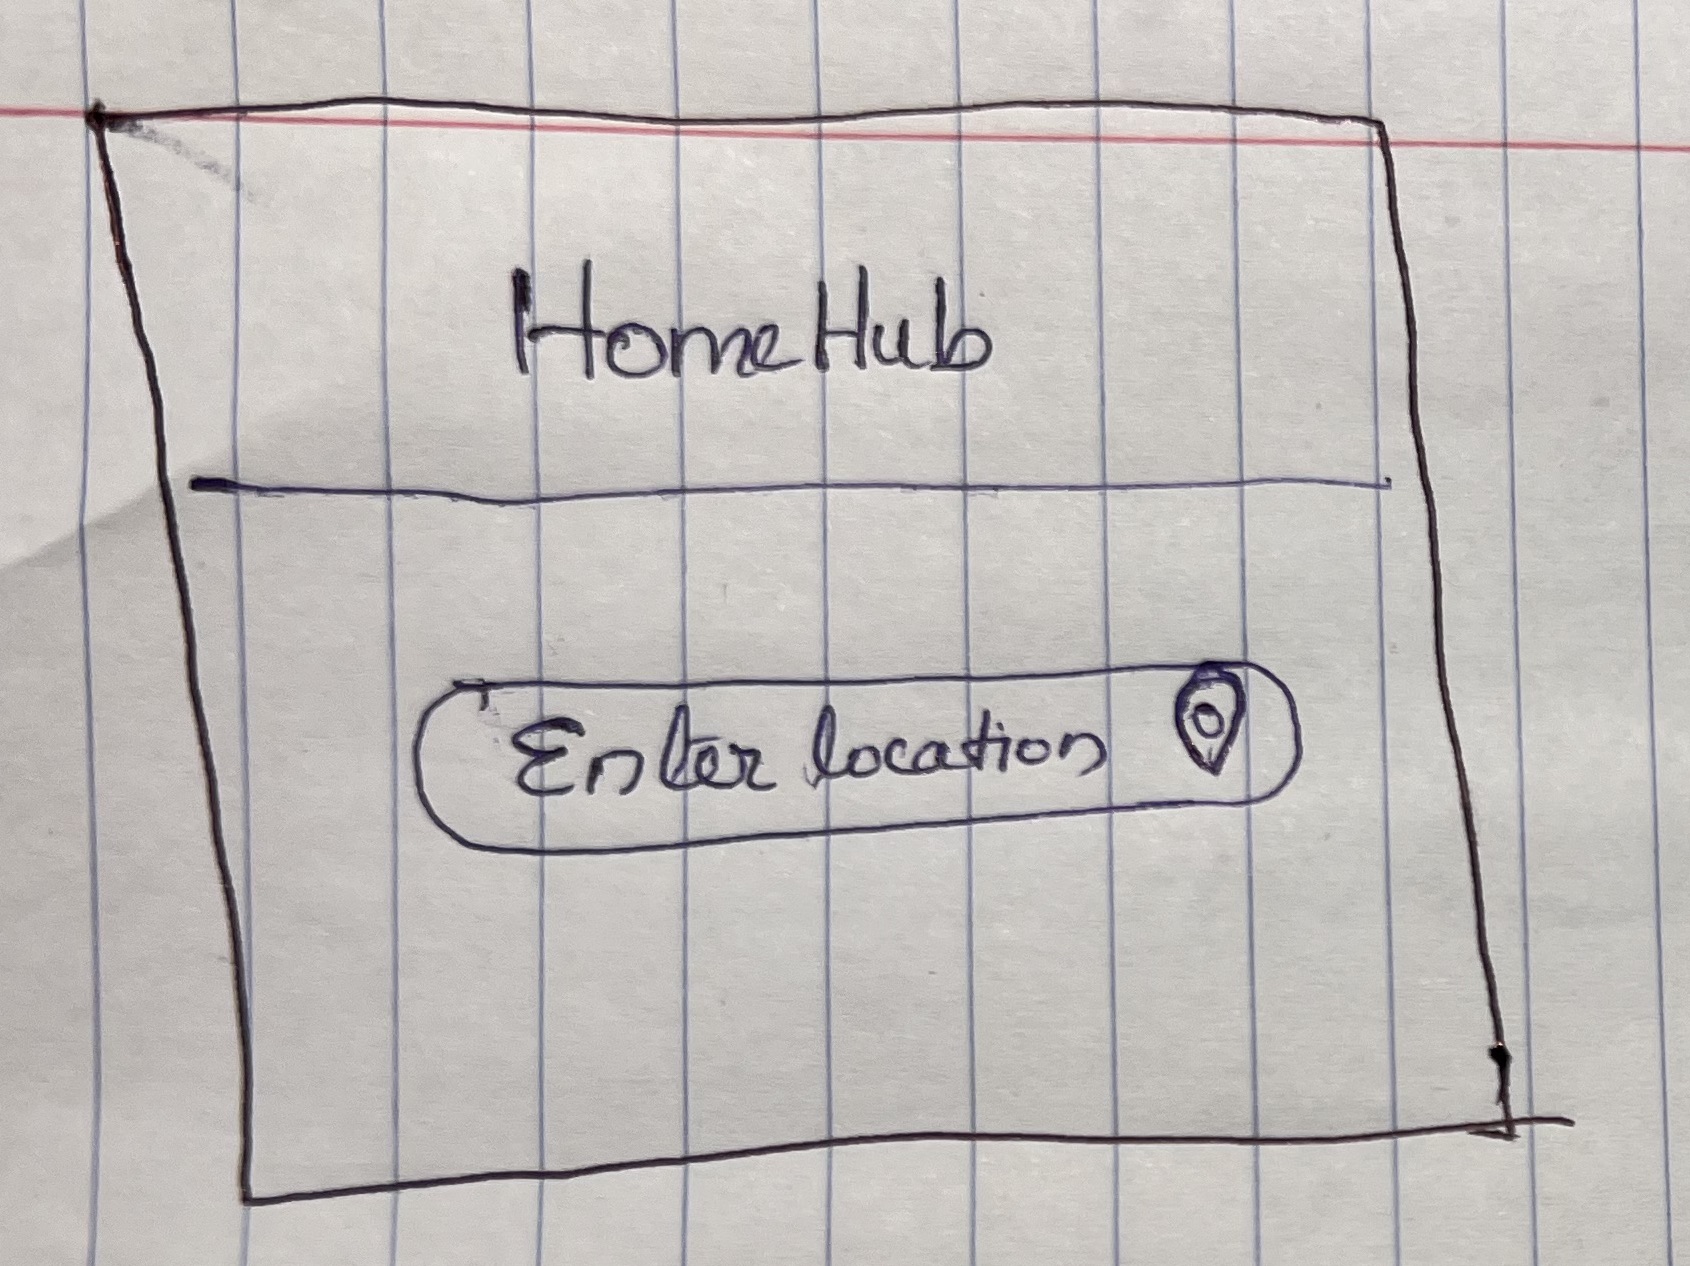 HomeHub
Enter location